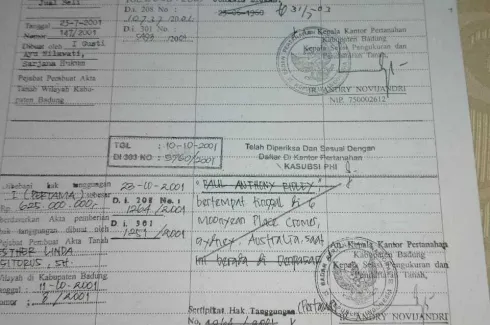 Jual Beli
D.i. 208 No :
10737/2001
23-05-1950
31/7-03
Tanggal 23-7-2001
Nomor 147/2001
D.i. 301 No :
/2001
Dibuat oleh I Gusti
Ayu Nilawati,
Sarjana Hukum
Pejabat Pembuat Akta
Tanah Wilayah Kabu-
paten Badung
An. Kepala Kantor Pertanahan
Kabupaten Badung
Kepala Seksi Pengukuran dan
Pendaftaran Tanah,
IR. ANDRY NOVIJANDRI
NIP. 750002612
TGL : 10-10-2001
DI 303 NO : 5760/2001
Telah Diperiksa Dan Sesuai Dengan
Daftar Di Kantor Pertanahan
KASUBSI PHI
hak tanggungan
I (PERTAMA) sebesar
Rp 625.000.000,-
berdasarkan Akta pemberian
hak tanggungan dibuat oleh
Pejabat Pembuat Akta Tanah
ESTHER LINDA
SITORUS, SH.
Wilayah di Kabupaten Badung
Tanggal : 11-10-2001
Nomor : 8/2001
23-10-2001
D.i. 208 No.:
1264/2001
D.i. 301
1251/2001
"PAUL ANTHONY RIPLEY"
bertempat tinggal di 6
Moonyean Place Cromer,
Sydney, Australia, saat
ini berada di Denpasar
Kepala Kantor Pertanahan
Kabupaten Badung
Kepala Seksi Pengukuran dan
Pendaftaran Tanah,
IR. ANDRY NOVIJANDRI
Sertipikat Hak Tanggungan (Pertama)
No.